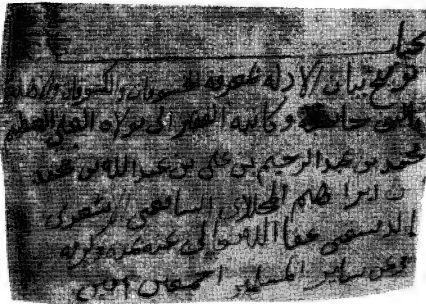 كتاب
توضيح بيان الأدلة لمعرفة الخسوفان والكسوفان والأهلة
وكاتبه الفقير إلى مولاه العلي العظيم
محمد بن عبد الرحيم بن علي بن عبد الله بن محمد
بن ابراهيم المحلاوي الشافعي الأشعري
الدمشقي عفا الله تعالى عنه بمنه وكرمه
وعن سائر المسلمين اجمعين امين